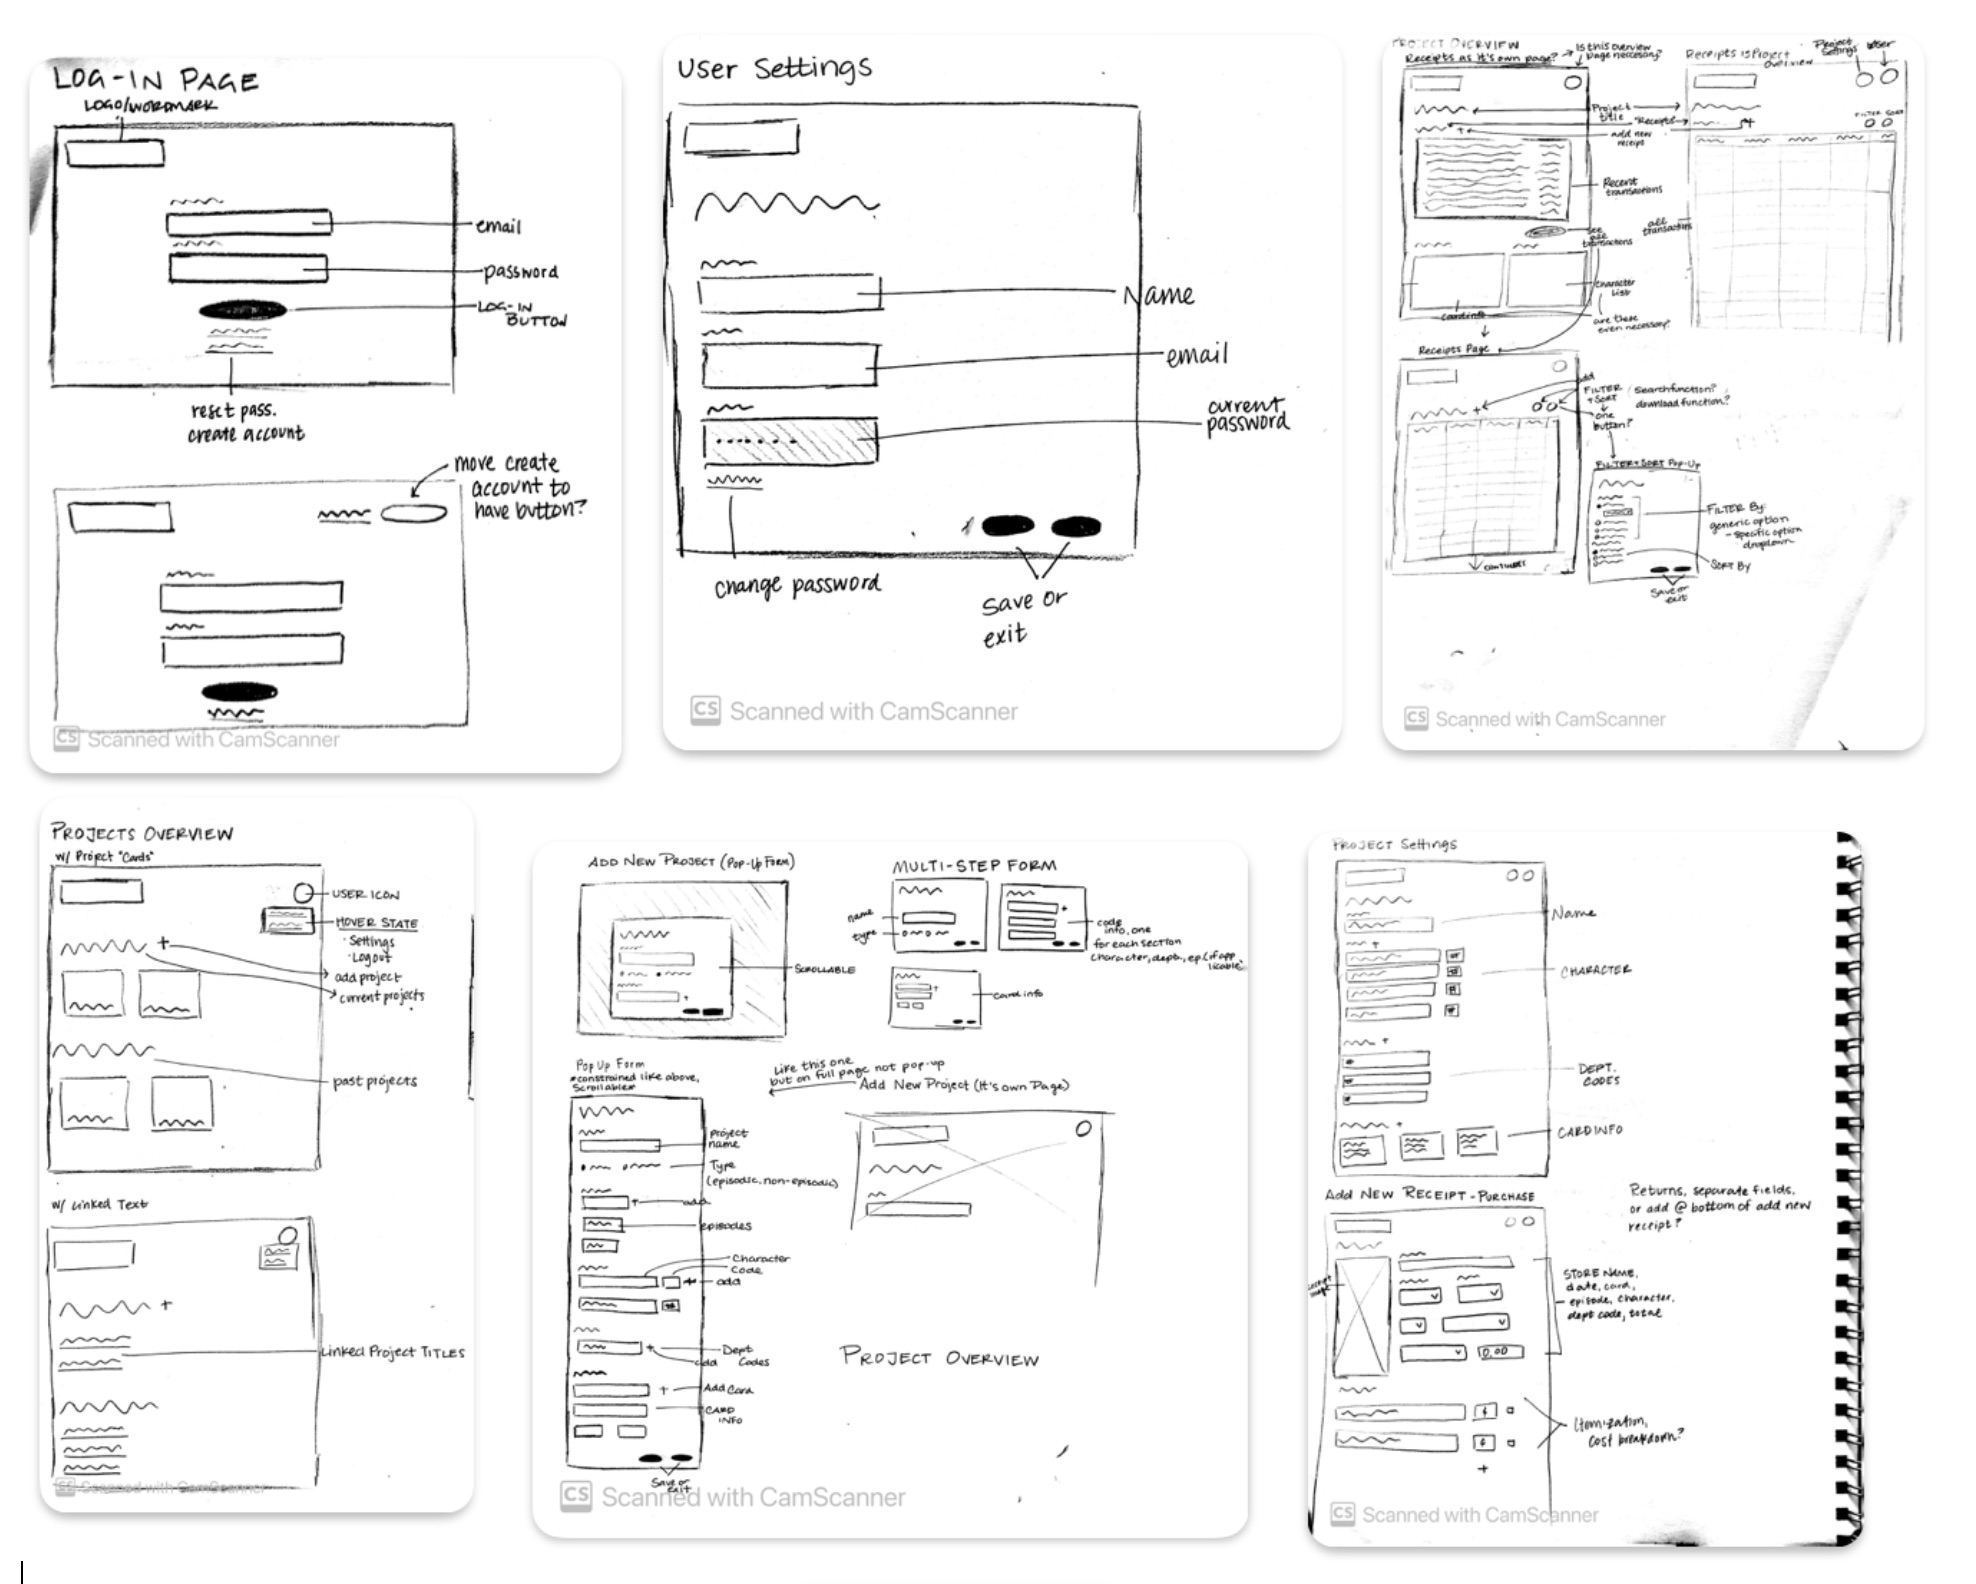 LOG-IN PAGE
LOGO/WORDMARK
email
password
LOG-IN
BUTTON
reset pass.
create account
move create
account to
have button?
CS Scanned with CamScanner
User Settings
Name
email
current
password
change password
Save or
exit
CS Scanned with CamScanner
PROJECT OVERVIEW
Receipts as it's own page?
Is this overview
page neccesary?
Receipts is Project
Overview
Project
Settings
User
Project
title
"Receipts"
add new
receipt
FILTER SORT
Recent
transactions
see
all
transactions
all
transactions
Character
List
card info
are these
even necessary?
Receipts Page
add
FILTER
+ SORT
one
button?
(Search function?
download function?
FILTER+SORT Pop-Up
FILTER By:
generic option
- specific option
dropdown
SORT By
Save or
exit
CONTINUES
CS Scanned with CamScanner
PROJECTS OVERVIEW
w/ Project "Cards"
USER ICON
HOVER STATE
· Settings
· Logout
add project
current projects
past projects
w/ Linked Text
Linked Project TITLES
CS Scanned with CamScanner
ADD NEW PROJECT (POP-UP FORM)
SCROLLABLE
MULTI-STEP FORM
name
type
code
info, one
for each section
character, dept., ep. (if app
licable)
card info
Pop Up Form
*constrained like above,
Scrollable*
Like this one
but on full page not pop-up
Add New Project (It's own Page)
project
name
Type
(episodic, non-episodic)
add
episodes
Character
Code
add
Dept
Codes
add
Add Card
CARD
INFO
Save or
exit
PROJECT OVERVIEW
CS Scanned with CamScanner
PROJECT Settings
Name
CHARACTER
DEPT.
CODES
CARD INFO
Add NEW RECEIPT - PURCHASE
Returns, separate fields,
or add @ bottom of add new
receipt?
STORE NAME,
date, card,
episode, character,
dept code, total
0.00
Itemization,
cost breakdown?
CS Scanned with CamScanner